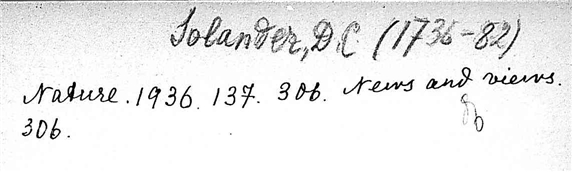 Solander, D.C (1736-82)
Nature. 1936. 137. 306. News and views.
306.